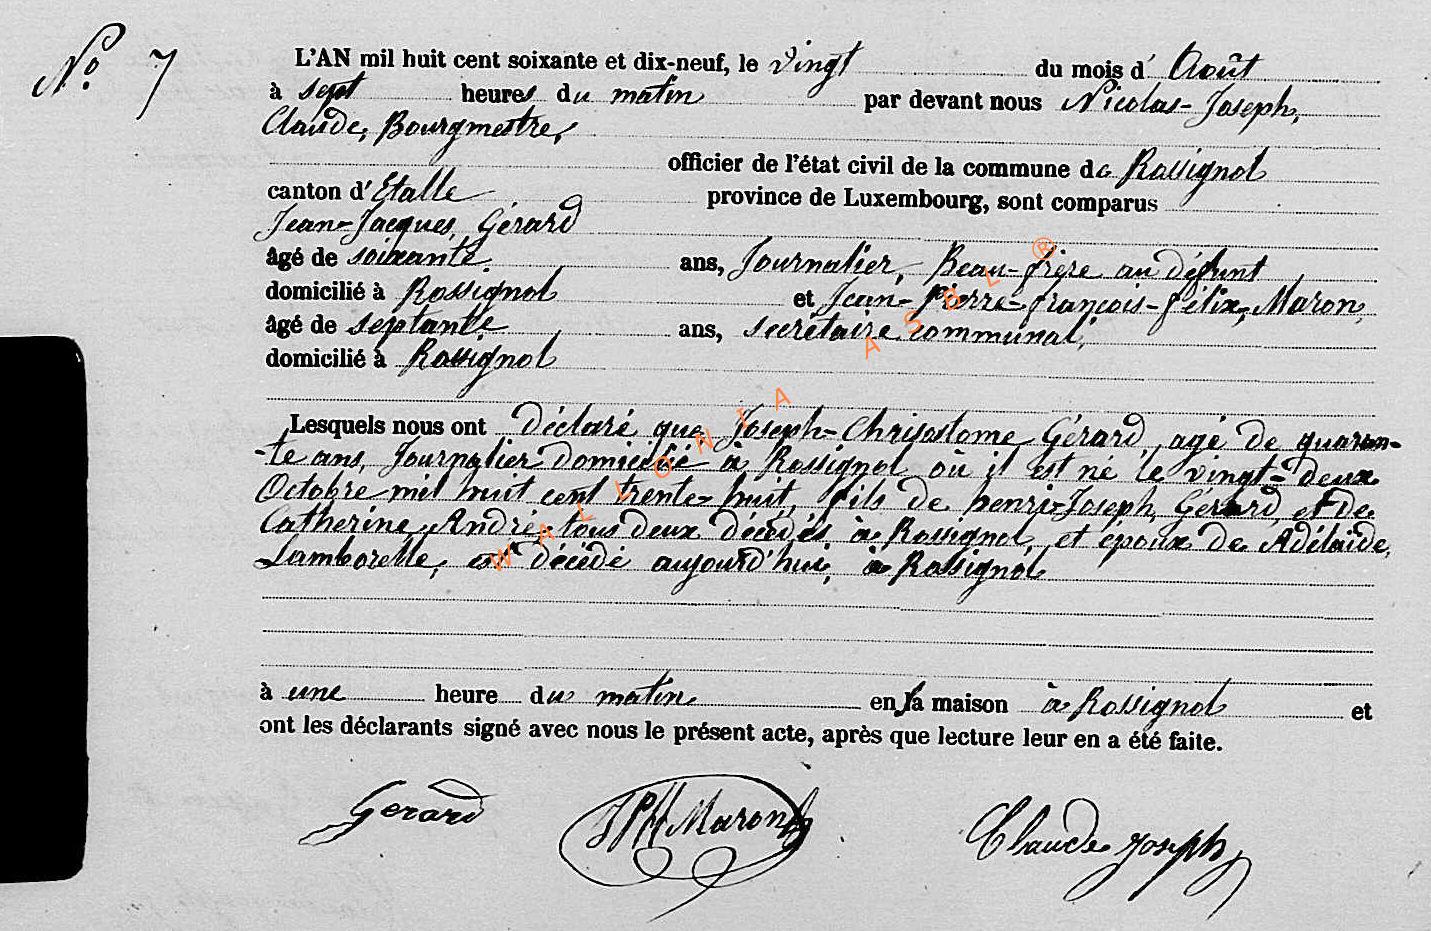 N° 7
L'AN mil huit cent soixante et dix-neuf, le vingt du mois d' Août
à sept heures du matin par devant nous Nicolas-Joseph,
Claude, Bourgmestre,
officier de l'état civil de la commune de Rossignol
canton d' Etalle province de Luxembourg, sont comparus
Jean-Jacques, Gérard
âgé de soixante ans, Journalier, Beau-frère au défunt
domicilié à Rossignol et Jean-Pierre-françois-félix, Maron,
âgé de septante ans, secrétaire communal,
domicilié à Rossignol
Lesquels nous ont déclaré que Joseph-Chrisostome Gérard, agé de quaran-
-te ans, Journalier domicilié à Rossignol où il est né le vingt-deux
Octobre mil huit cent trente-huit, fils de henri-Joseph, Gérard, et de
Catherine, André, tous deux décédés à Rossignol, et époux de Adélaïde,
Lamborelle, est décédé aujourd'hui, à Rossignol
à une heure du matin en sa maison à Rossignol et
ont les déclarants signé avec nous le présent acte, après que lecture leur en a été faite.
Gerard JPff Maron Claude Joseph
WALLONIA ASBL ®